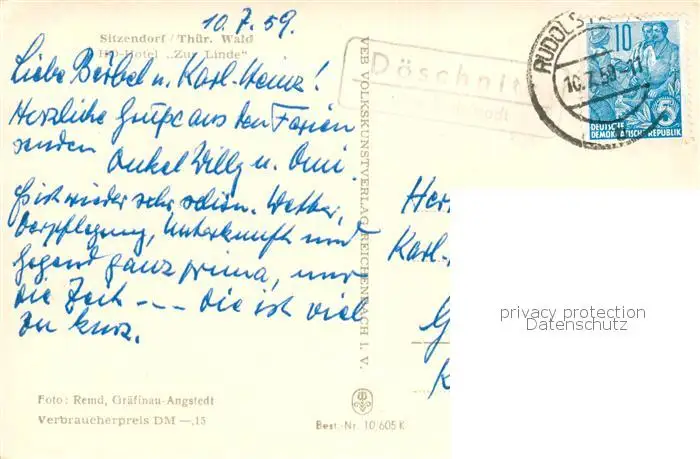 10.7.59.
Sitzendorf / Thür. Wald
HO-Hotel „Zur Linde"
Liebe Bärbel u. Karl-Heinz!
Herzliche Grüße aus den Ferien
senden Onkel Willy u. Omi.
Es ist wieder sehr schön. Wetter,
Verpflegung, Unterkunft und
Gegend ganz prima, nur
die Zeit --- die ist viel
zu kurz.
Foto: Remd, Gräfinau-Angstedt
Verbraucherpreis DM —,15
VEB VOLKSKUNSTVERLAG REICHENBACH I. V.
Best.-Nr. 10/605 K
Döschnit
RUDOLST
10.7.59-11
10
5
DEUTSCHE
DEMOKRATISCHE REPUBLIK
Her
Karl-
G
K
privacy protection
Datenschutz